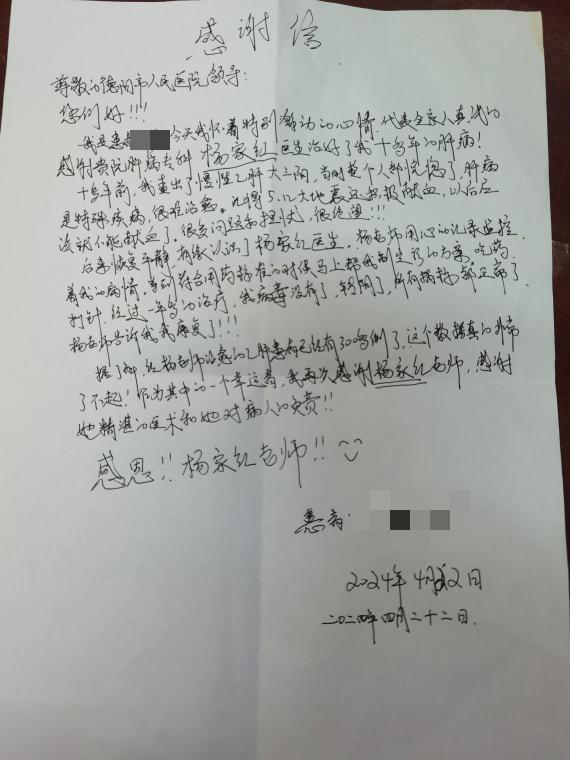 感谢信
尊敬的德阳市人民医院领导：
您们好!!!
我是患者 今天我怀着特别激动的心情，代表全家人真诚的
感谢贵院肝病专科 杨家红医生治好了我十多年的肝病!
十多年前，我查出了慢性乙肝大三阳，当时整个人都恍惚了，肝病
是特殊疾病，很难治愈。记得5.12大地震还我投献血，以后应
该就不能献血了。很多问题和担忧，很绝望!!!
后来恢复平静，有缘认识了杨家红医生，杨老师用心的记录监控
着我的病情，等到符合用药标准的时候马上帮我制定了的方案，吃药，
打针，经过一年多的治疗，我病毒没有了，转阴了，所有指标都正常了
杨老师告诉我我康复了!!!
据了解，经杨老师治愈的乙肝患者已经有30多例了，这个数据真的非常
了不起! 作为其中的一个幸运者，我再次感谢杨家红老师，感谢
她精湛的医术和她对病人的负责!!
感恩!! 杨家红老师!!
患者：
2024年4月22日
二〇二四年四月二十二日.